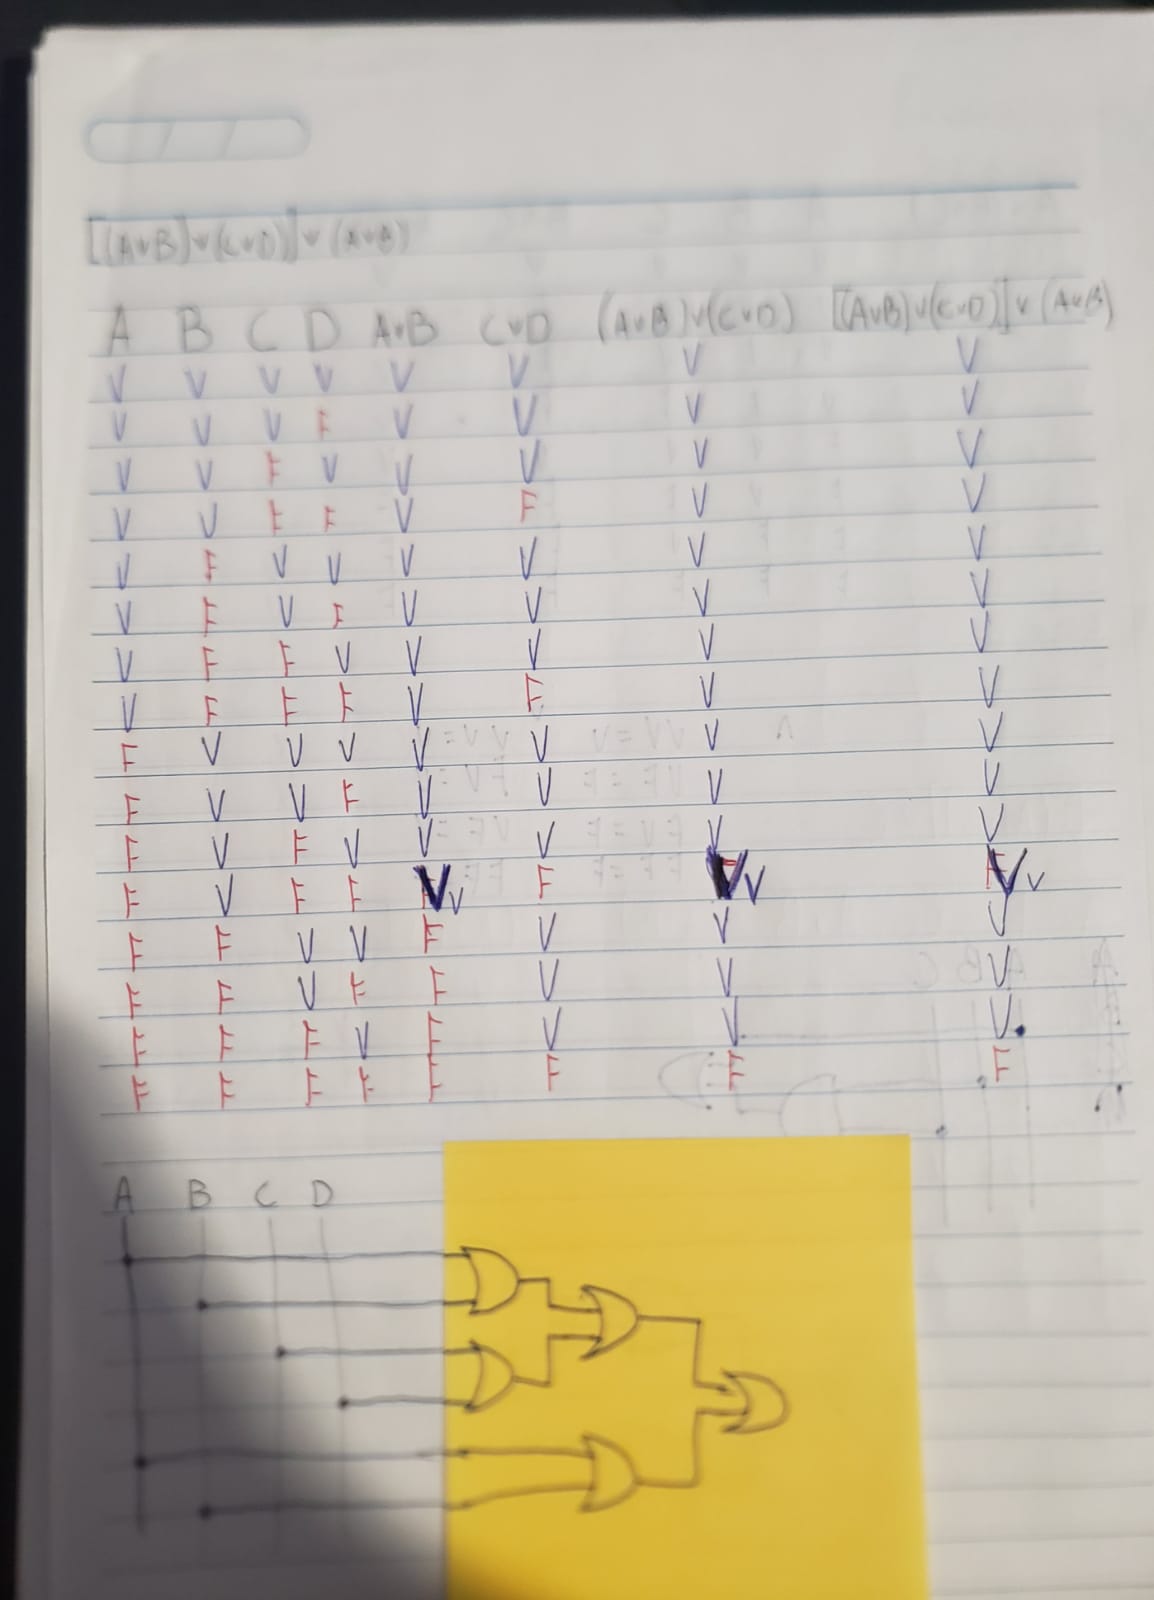 [(A∨B)∨(C∨D)]∨(A∨B)
A B C D A∨B C∨D (A∨B)∨(C∨D) [(A∨B)∨(C∨D)]∨(A∨B)
V V V V V V V V
V V V F V V V V
V V F V V V V V
V V F F V F V V
V F V V V V V V
V F V F V V V V
V F F V V V V V
V F F F V F V V
F V V V V V V V
F V V F V V V V
F V F V V V V V
F V F F V v F V v V v
F F V V F V V V
F F V F F V V V
F F F V F V V V
F F F F F F F F
A B C D